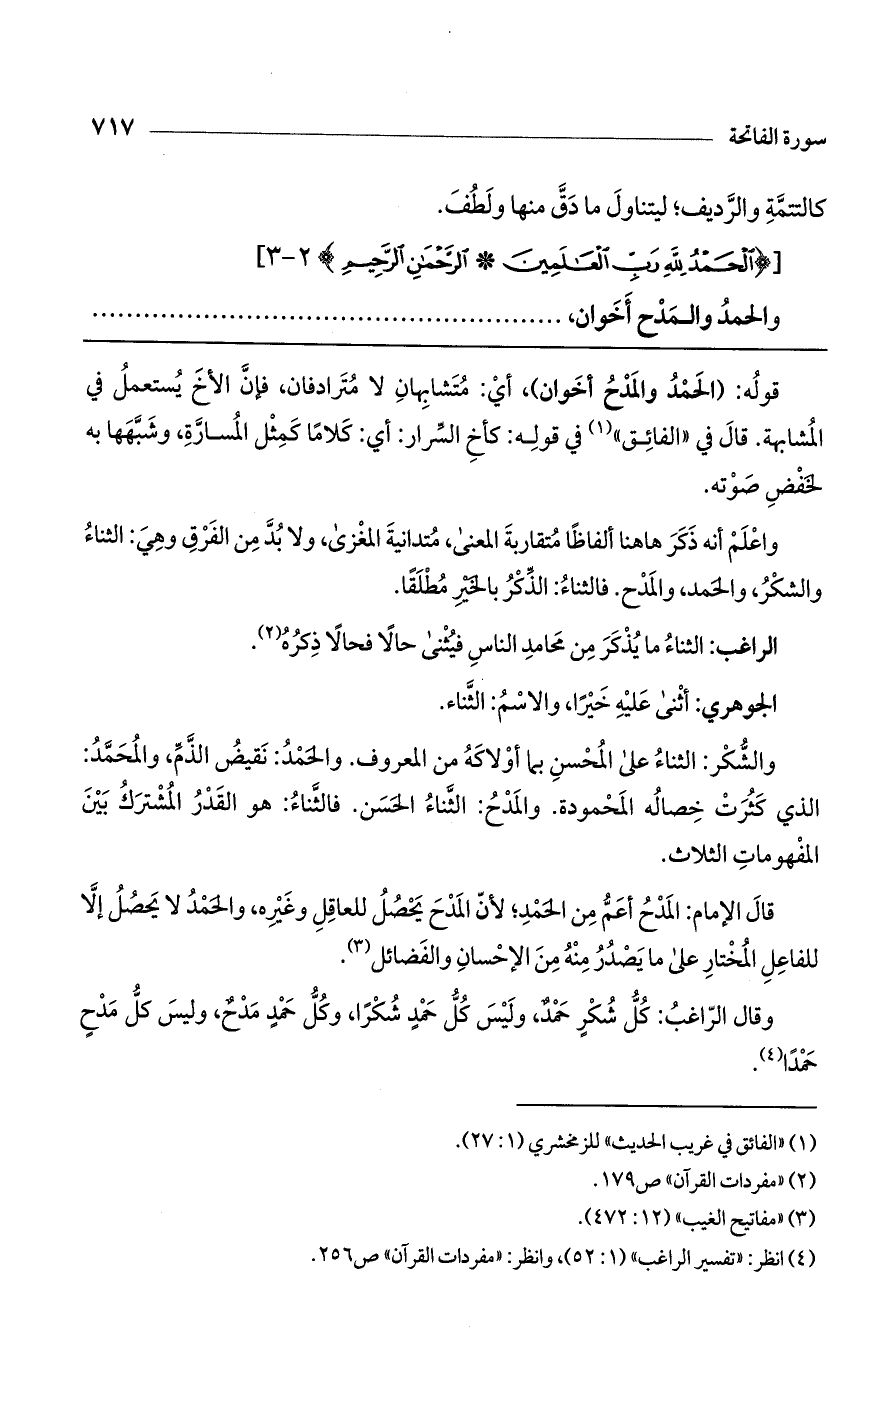 سورة الفاتحة ٧١٧
كالتتمَّةِ والرَّديف؛ ليتناولَ ما دَقَّ منها ولَطُفَ.
[﴿ٱلۡحَـمۡدُ لِلَّهِ رَبِّ ٱلۡعَـٰلَمِينَ * ٱلرَّحۡمَٰنِ ٱلرَّحِيمِ﴾ ٢-٣]
والحمدُ والـمَدْح أَخَوان، ..................................................
قولُه: (الحَمْدُ والمَدْحُ أخَوان)، أيْ: مُتَشابِهانِ لا مُتَرادفان، فإنَّ الأخَ يُستعملُ في
المُشابهة. قالَ في «الفائِـق»(١) في قولِـه: كأخِ السِّرار: أي: كَلامًا كَمِثْل المُسارَّةِ، وشَبَّهَها به
لخَفْضِ صَوْته.
واعْلَمْ أنه ذَكَرَ هاهنا ألفاظًا مُتقاربةَ المعنىٰ، مُتدانيةَ المغْزىٰ، ولا بُدَّ مِن الفَرْقِ وهِيَ: الثناءُ
والشكْرُ، والحَمد، والمَدْح. فالثناءُ: الذِّكْرُ بالخَيْرِ مُطْلَقًا.
الراغب: الثناءُ ما يُذْكَرَ مِن مَحامدِ الناسِ فيُثْنىٰ حالًا فحالًا ذِكرُهُ(٢).
الجوهري: أثْنىٰ عَلَيْهِ خَيْرًا، والاسْمُ: الثَّناء.
والشُّكْر: الثناءُ علىٰ المُحْسنِ بما أوْلاكَهُ من المعروف. والحَمْدُ: نَقيضُ الذَّمِّ، والمُحَمَّدُ:
الذي كَثُرَتْ خِصالُه المَحْمودة. والمَدْحُ: الثَّناءُ الحَسَن. فالثَّناءُ: هو القَدْرُ المُشْتركُ بَيْنَ
المفْهوماتِ الثلاث.
قالَ الإمام: المَدْحُ أعَمُّ مِن الحَمْدِ؛ لأنّ المَدْحَ يَحْصُلُ للعاقلِ وغَيْرِه، والحَمْدُ لا يَحصُلُ إلَّا
للفاعِلِ المُخْتارِ علىٰ ما يَصْدُرُ مِنْهُ مِنَ الإحْسانِ والفَضائل(٣).
وقال الرّاغبُ: كُلُّ شُكْرٍ حَمْدٌ، ولَيْسَ كُلُّ حَمْدٍ شُكْرًا، وكُلُّ حَمْدٍ مَدْحٌ، وليسَ كلُّ مَدْحٍ
حَمْدًا(٤).
(١) «الفائق في غريب الحديث» للزمخشري (١: ٢٧).
(٢) «مفردات القرآن» ص١٧٩.
(٣) «مفاتيح الغيب» (١٢: ٤٧٢).
(٤) انظر: «تفسير الراغب» (١: ٥٢)، وانظر: «مفردات القرآن» ص٢٥٦.